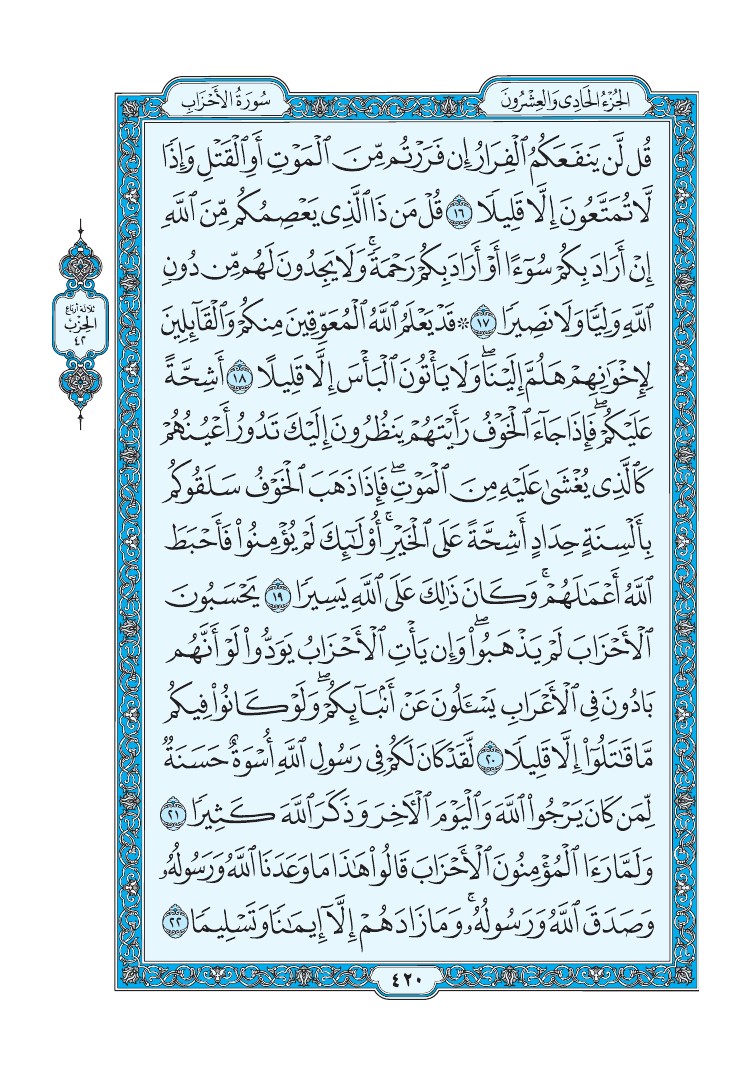 الجزء الحادي والعشرون
سورة الأحزاب
قُل لَّن يَنفَعَكُمُ ٱلۡفِرَارُ إِن فَرَرۡتُم مِّنَ ٱلۡمَوۡتِ أَوِ ٱلۡقَتۡلِ وَإِذٗا
لَّا تُمَتَّعُونَ إِلَّا قَلِيلٗا ١٦ قُلۡ مَن ذَا ٱلَّذِي يَعۡصِمُكُم مِّنَ ٱللَّهِ
إِنۡ أَرَادَ بِكُمۡ سُوٓءًا أَوۡ أَرَادَ بِكُمۡ رَحۡمَةٗۚ وَلَا يَجِدُونَ لَهُم مِّن دُونِ
ٱللَّهِ وَلِيّٗا وَلَا نَصِيرٗا ١٧ ۞ قَدۡ يَعۡلَمُ ٱللَّهُ ٱلۡمُعَوِّقِينَ مِنكُمۡ وَٱلۡقَآئِلِينَ
لِإِخۡوَٰنِهِمۡ هَلُمَّ إِلَيۡنَاۖ وَلَا يَأۡتُونَ ٱلۡبَأۡسَ إِلَّا قَلِيلًا ١٨ أَشِحَّةً
عَلَيۡكُمۡۖ فَإِذَا جَآءَ ٱلۡخَوۡفُ رَأَيۡتَهُمۡ يَنظُرُونَ إِلَيۡكَ تَدُورُ أَعۡيُنُهُمۡ
كَٱلَّذِي يُغۡشَىٰ عَلَيۡهِ مِنَ ٱلۡمَوۡتِۖ فَإِذَا ذَهَبَ ٱلۡخَوۡفُ سَلَقُوكُم
بِأَلۡسِنَةٍ حِدَادٍ أَشِحَّةً عَلَى ٱلۡخَيۡرِۚ أُوْلَٰٓئِكَ لَمۡ يُؤۡمِنُواْ فَأَحۡبَطَ
ٱللَّهُ أَعۡمَٰلَهُمۡۚ وَكَانَ ذَٰلِكَ عَلَى ٱللَّهِ يَسِيرٗا ١٩ يَحۡسَبُونَ
ٱلۡأَحۡزَابَ لَمۡ يَذۡهَبُواْۖ وَإِن يَأۡتِ ٱلۡأَحۡزَابُ يَوَدُّواْ لَوۡ أَنَّهُم
بَادُونَ فِي ٱلۡأَعۡرَابِ يَسۡـَٔلُونَ عَنۡ أَنۢبَآئِكُمۡۖ وَلَوۡ كَانُواْ فِيكُم
مَّا قَٰتَلُوٓاْ إِلَّا قَلِيلٗا ٢٠ لَّقَدۡ كَانَ لَكُمۡ فِي رَسُولِ ٱللَّهِ أُسۡوَةٌ حَسَنَةٞ
لِّمَن كَانَ يَرۡجُواْ ٱللَّهَ وَٱلۡيَوۡمَ ٱلۡأٓخِرَ وَذَكَرَ ٱللَّهَ كَثِيرٗا ٢١
وَلَمَّا رَءَا ٱلۡمُؤۡمِنُونَ ٱلۡأَحۡزَابَ قَالُواْ هَٰذَا مَا وَعَدَنَا ٱللَّهُ وَرَسُولُهُۥ
وَصَدَقَ ٱللَّهُ وَرَسُولُهُۥۚ وَمَا زَادَهُمۡ إِلَّآ إِيمَٰنٗا وَتَسۡلِيمٗا ٢٢
ثلاثة أرباع
الحزب
٤٢
٤٢٠